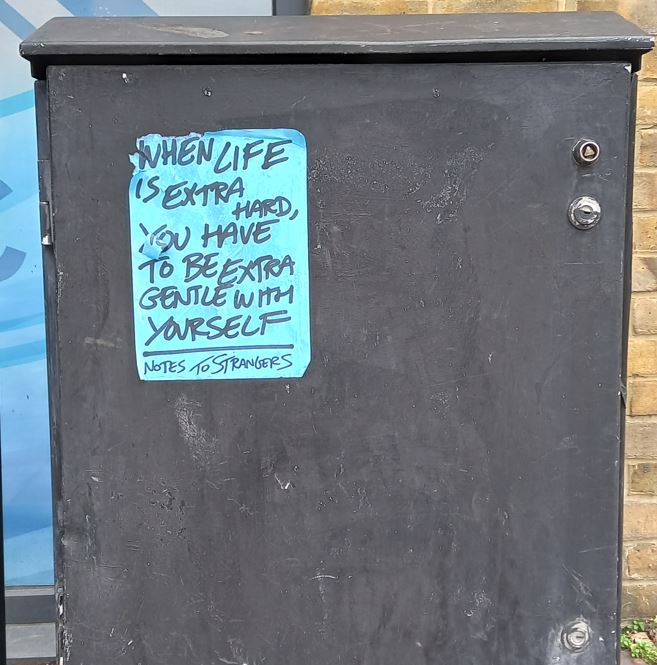 WHEN LIFE
IS EXTRA
HARD,
YOU HAVE
TO BE EXTRA
GENTLE WITH
YOURSELF
NOTES TO STRANGERS